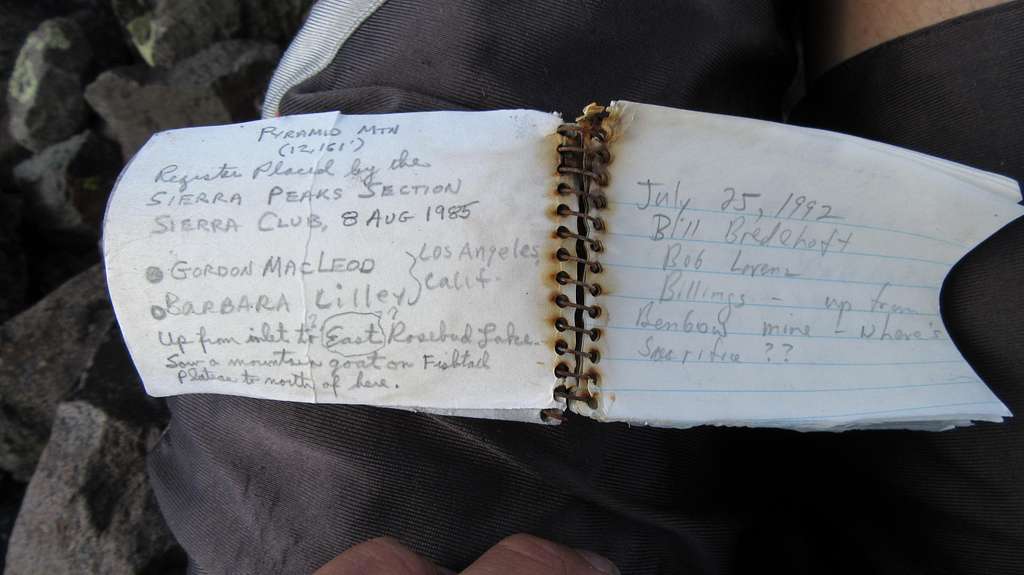 PYRAMID MTN
(12,161')
Register Placed by the
SIERRA PEAKS SECTION
SIERRA CLUB, 8 AUG 1985
GORDON MACLEOD
BARBARA Lilley
Los Angeles
Calif.
Up from inlet to ? East ? Rosebud Lake.
Saw a mountain goat on Fishtail
Plateau to north of here.
July 25, 1992
Bill Bredehoft
Bob Lorenz
Billings - up from
Benbow mine - where's
??